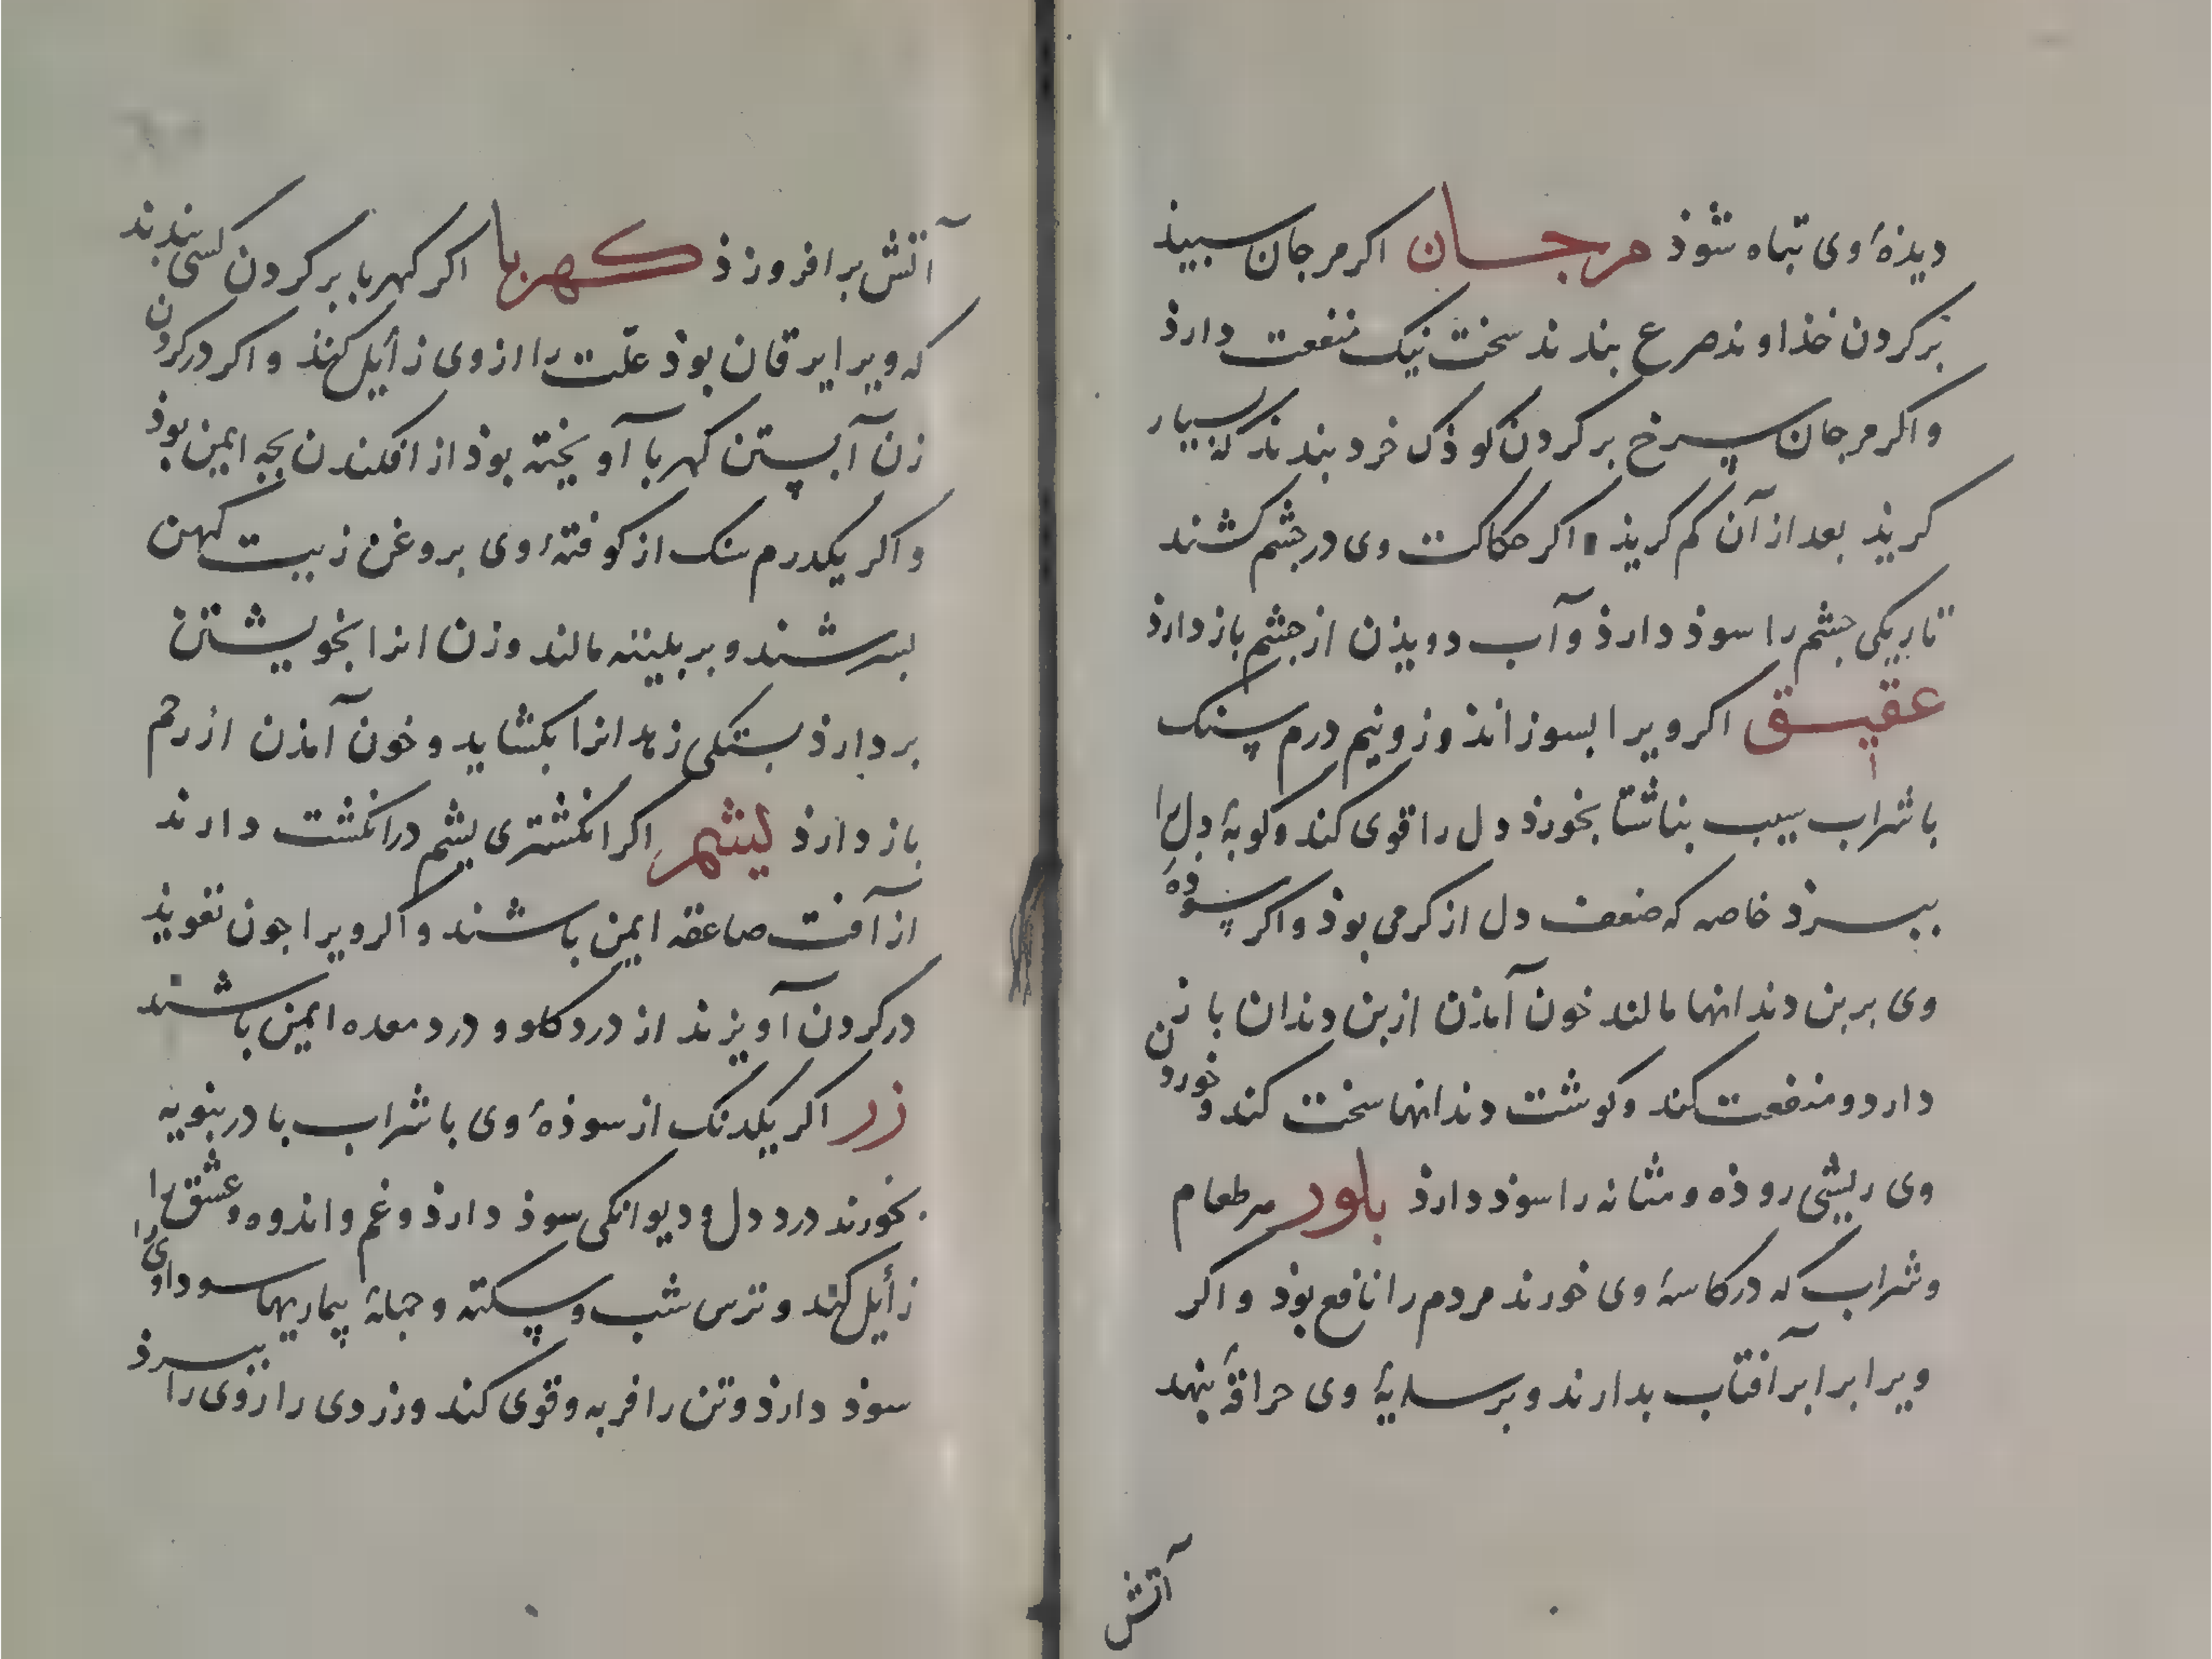 دیذهٔ وی تباه شوذ مرجان اکر مرجان سبیذ
بر کردن خذاوند صرع بندند سخت نیک منفعت دارذ
واکر مرجان سرخ بر کردن کوذک خرد بندند که بسیار
کریذ بعد از آن کم کریذ اکر حکاکت وی در جشم کشند
تاریکی جشم را سوذ دارذ و آب دویذن از جشم باز دارذ
عقیق اکر ویرا بسوزانند وزو نیم درم سنک
با شراب سیب بناشتا بخورذ دل را قوی کند وکوبهٔ دل را
ببرذ خاصه که ضعف دل از کرمی بوذ واکر سوذهٔ
وی بر بن دندانها مالند خون آمذن از بن دندان باز
دارد ومنفعت کند وکوشت دندانها سخت کند وخوردن
وی ریشی روذه و مثانه را سوذ دارذ بلور هر طعام
وشراب که در کاسهٔ وی خورند مردم را نافع بوذ واکر
ویرا برابر آفتاب بدارند و بر سایهٔ وی حراقهٔ بنهد
آتش
آتش برافروزذ کهربا اکر کهربا بر کردن کسی بندند
که ویرا یرقان بوذ علّت را از وی زأیل کند واکر در کردن
زن آبستن کهربا آویخته بوذ از افکندن بجه ایمن بوذ
واکر یکدرم سنک از کوفتهٔ وی بروغن زیت کهن
بسرشند و بر بلیته مالند وزن انرا بخویشتن
بر دارذ بستکی زهدانرا بکشاید و خون آمذن از رحم
باز دارذ یشم اکر انکشتری یشم در انکشت دارند
از آفت صاعقه ایمن باشند واکر ویرا جون تعویذ
در کردن آویزند از درد کلو و درد معده ایمن باشند
زر اکر یکدنک از سوذهٔ وی با شراب بادرنبویه
بخورند درد دل و دیوانکی سوذ دارذ وغم واندوه وعشق را
زأیل کند و ترس شب وسکته و جملهٔ بیماریها سوداوی را
سوذ دارذ وتن را فربه وقوی کند وزردی را از روی را ببرذ